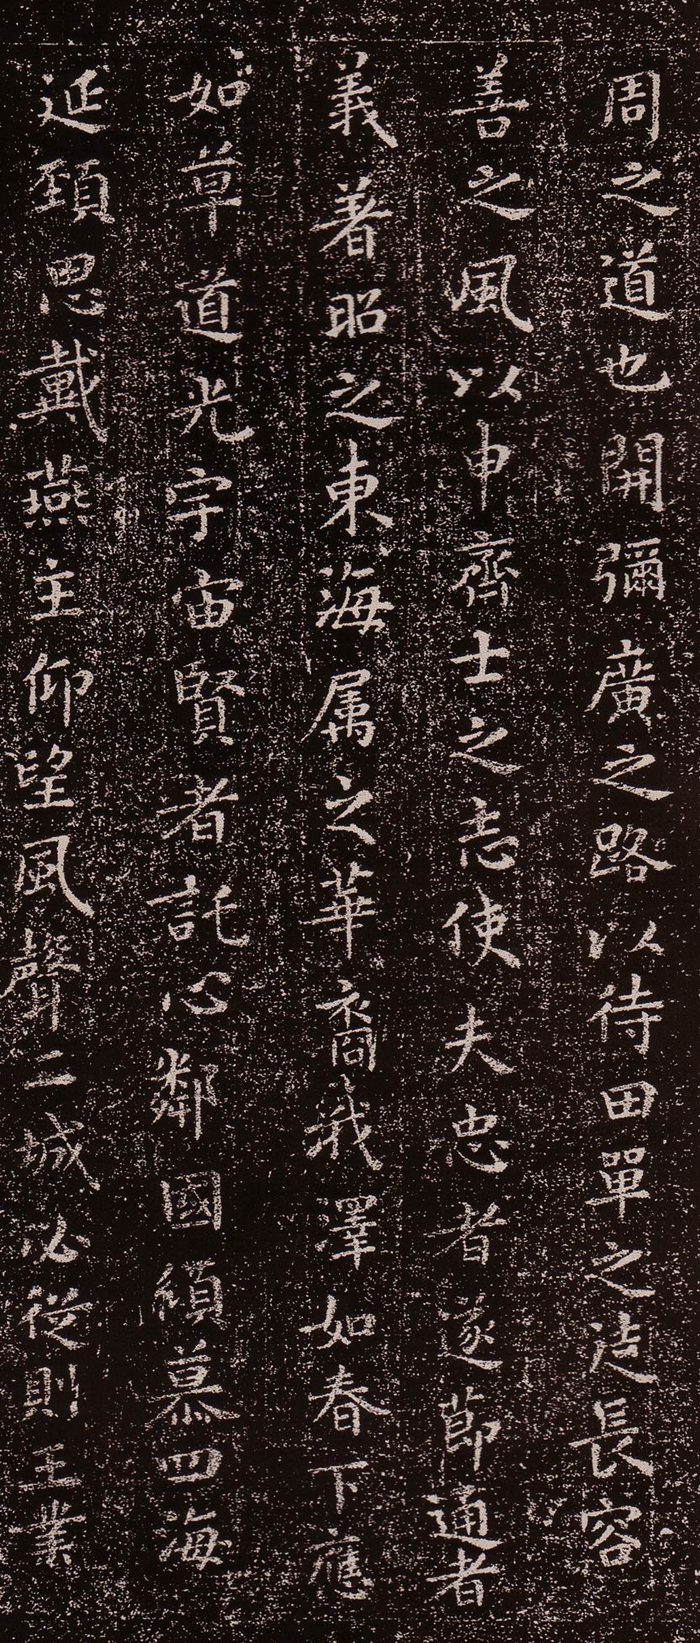 周之道也開彌廣之路以待田單之徒長容
善之風以申齊士之志使夫忠者遂節通者
義著昭之東海属之華裔我澤如春下應
如草道光宇宙賢者託心鄰國傾慕四海
延頸思戴燕主仰望風聲二城必從則王業